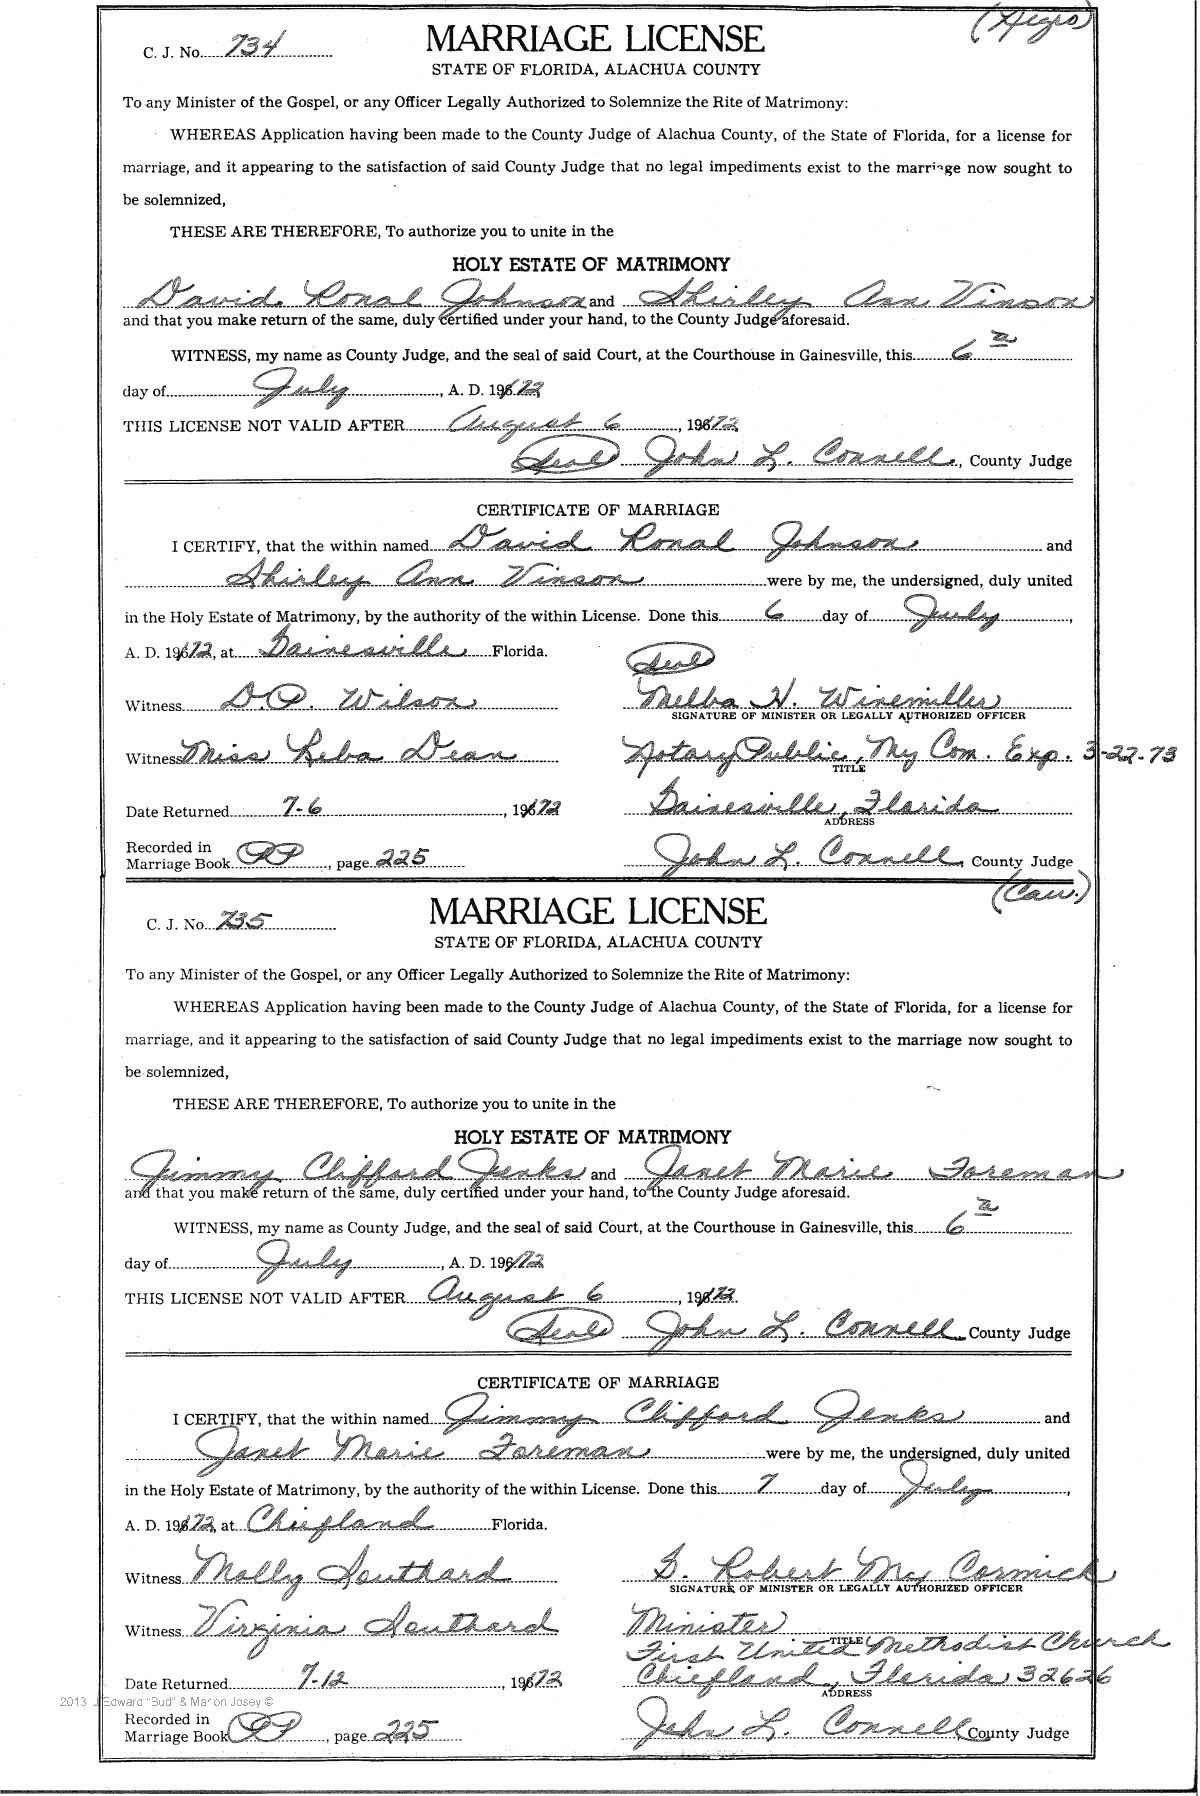 (Negro)
C. J. No. 734
MARRIAGE LICENSE
STATE OF FLORIDA, ALACHUA COUNTY
To any Minister of the Gospel, or any Officer Legally Authorized to Solemnize the Rite of Matrimony:
WHEREAS Application having been made to the County Judge of Alachua County, of the State of Florida, for a license for
marriage, and it appearing to the satisfaction of said County Judge that no legal impediments exist to the marriage now sought to
be solemnized,
THESE ARE THEREFORE, To authorize you to unite in the
HOLY ESTATE OF MATRIMONY
David Ronal Johnson and Shirley Ann Vinson
and that you make return of the same, duly certified under your hand, to the County Judge aforesaid.
WITNESS, my name as County Judge, and the seal of said Court, at the Courthouse in Gainesville, this 6
day of July, A. D. 1972
THIS LICENSE NOT VALID AFTER August 6, 1972
(Seal) John L. Connell, County Judge
CERTIFICATE OF MARRIAGE
I CERTIFY, that the within named David Ronal Johnson and
Shirley Ann Vinson were by me, the undersigned, duly united
in the Holy Estate of Matrimony, by the authority of the within License. Done this 6 day of July,
A. D. 1972, at Gainesville Florida.
(Seal)
Witness D. P. Wilson Melba H. Winemiller
SIGNATURE OF MINISTER OR LEGALLY AUTHORIZED OFFICER
Witness Miss Reba Dean Notary Public, My Com. Exp. 3-22-73
TITLE
Date Returned 7-6, 1972 Gainesville, Florida
ADDRESS
Recorded in
Marriage Book PP, page 225 John L. Connell, County Judge
(Cau.)
C. J. No. 735
MARRIAGE LICENSE
STATE OF FLORIDA, ALACHUA COUNTY
To any Minister of the Gospel, or any Officer Legally Authorized to Solemnize the Rite of Matrimony:
WHEREAS Application having been made to the County Judge of Alachua County, of the State of Florida, for a license for
marriage, and it appearing to the satisfaction of said County Judge that no legal impediments exist to the marriage now sought to
be solemnized,
THESE ARE THEREFORE, To authorize you to unite in the
HOLY ESTATE OF MATRIMONY
Jimmy Clifford Jenks and Janet Marie Foreman
and that you make return of the same, duly certified under your hand, to the County Judge aforesaid.
WITNESS, my name as County Judge, and the seal of said Court, at the Courthouse in Gainesville, this 6
day of July, A. D. 1972
THIS LICENSE NOT VALID AFTER August 6, 1972.
(Seal) John L. Connell County Judge
CERTIFICATE OF MARRIAGE
I CERTIFY, that the within named Jimmy Clifford Jenks and
Janet Marie Foreman were by me, the undersigned, duly united
in the Holy Estate of Matrimony, by the authority of the within License. Done this 7 day of July,
A. D. 1972, at Chiefland Florida.
Witness Molly Southard G. Robert McCormick
SIGNATURE OF MINISTER OR LEGALLY AUTHORIZED OFFICER
Witness Virginia Southard Minister
TITLE
First United Methodist Church
Date Returned 7-12, 1972 Chiefland, Florida 32626
ADDRESS
2013 J Edward "Bud" & Marion Josey ©
Recorded in
Marriage Book PP, page 225 John L. Connell County Judge